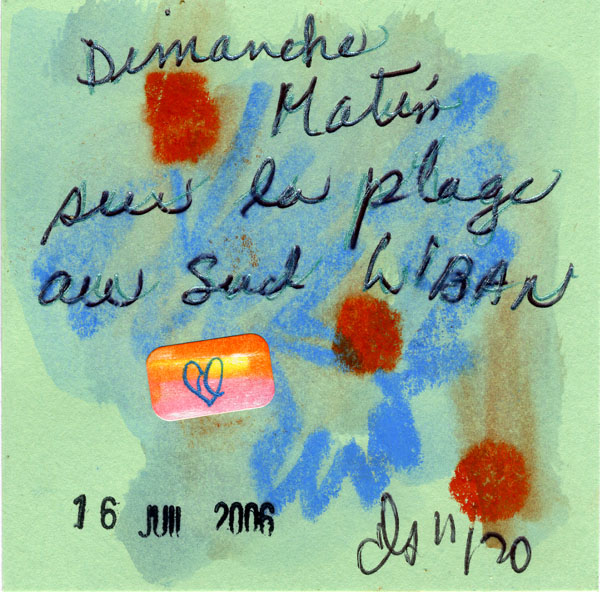 Dimanche
Matin
sur la plage
au Sud LiBAN
16 JUIL 2006
11/20